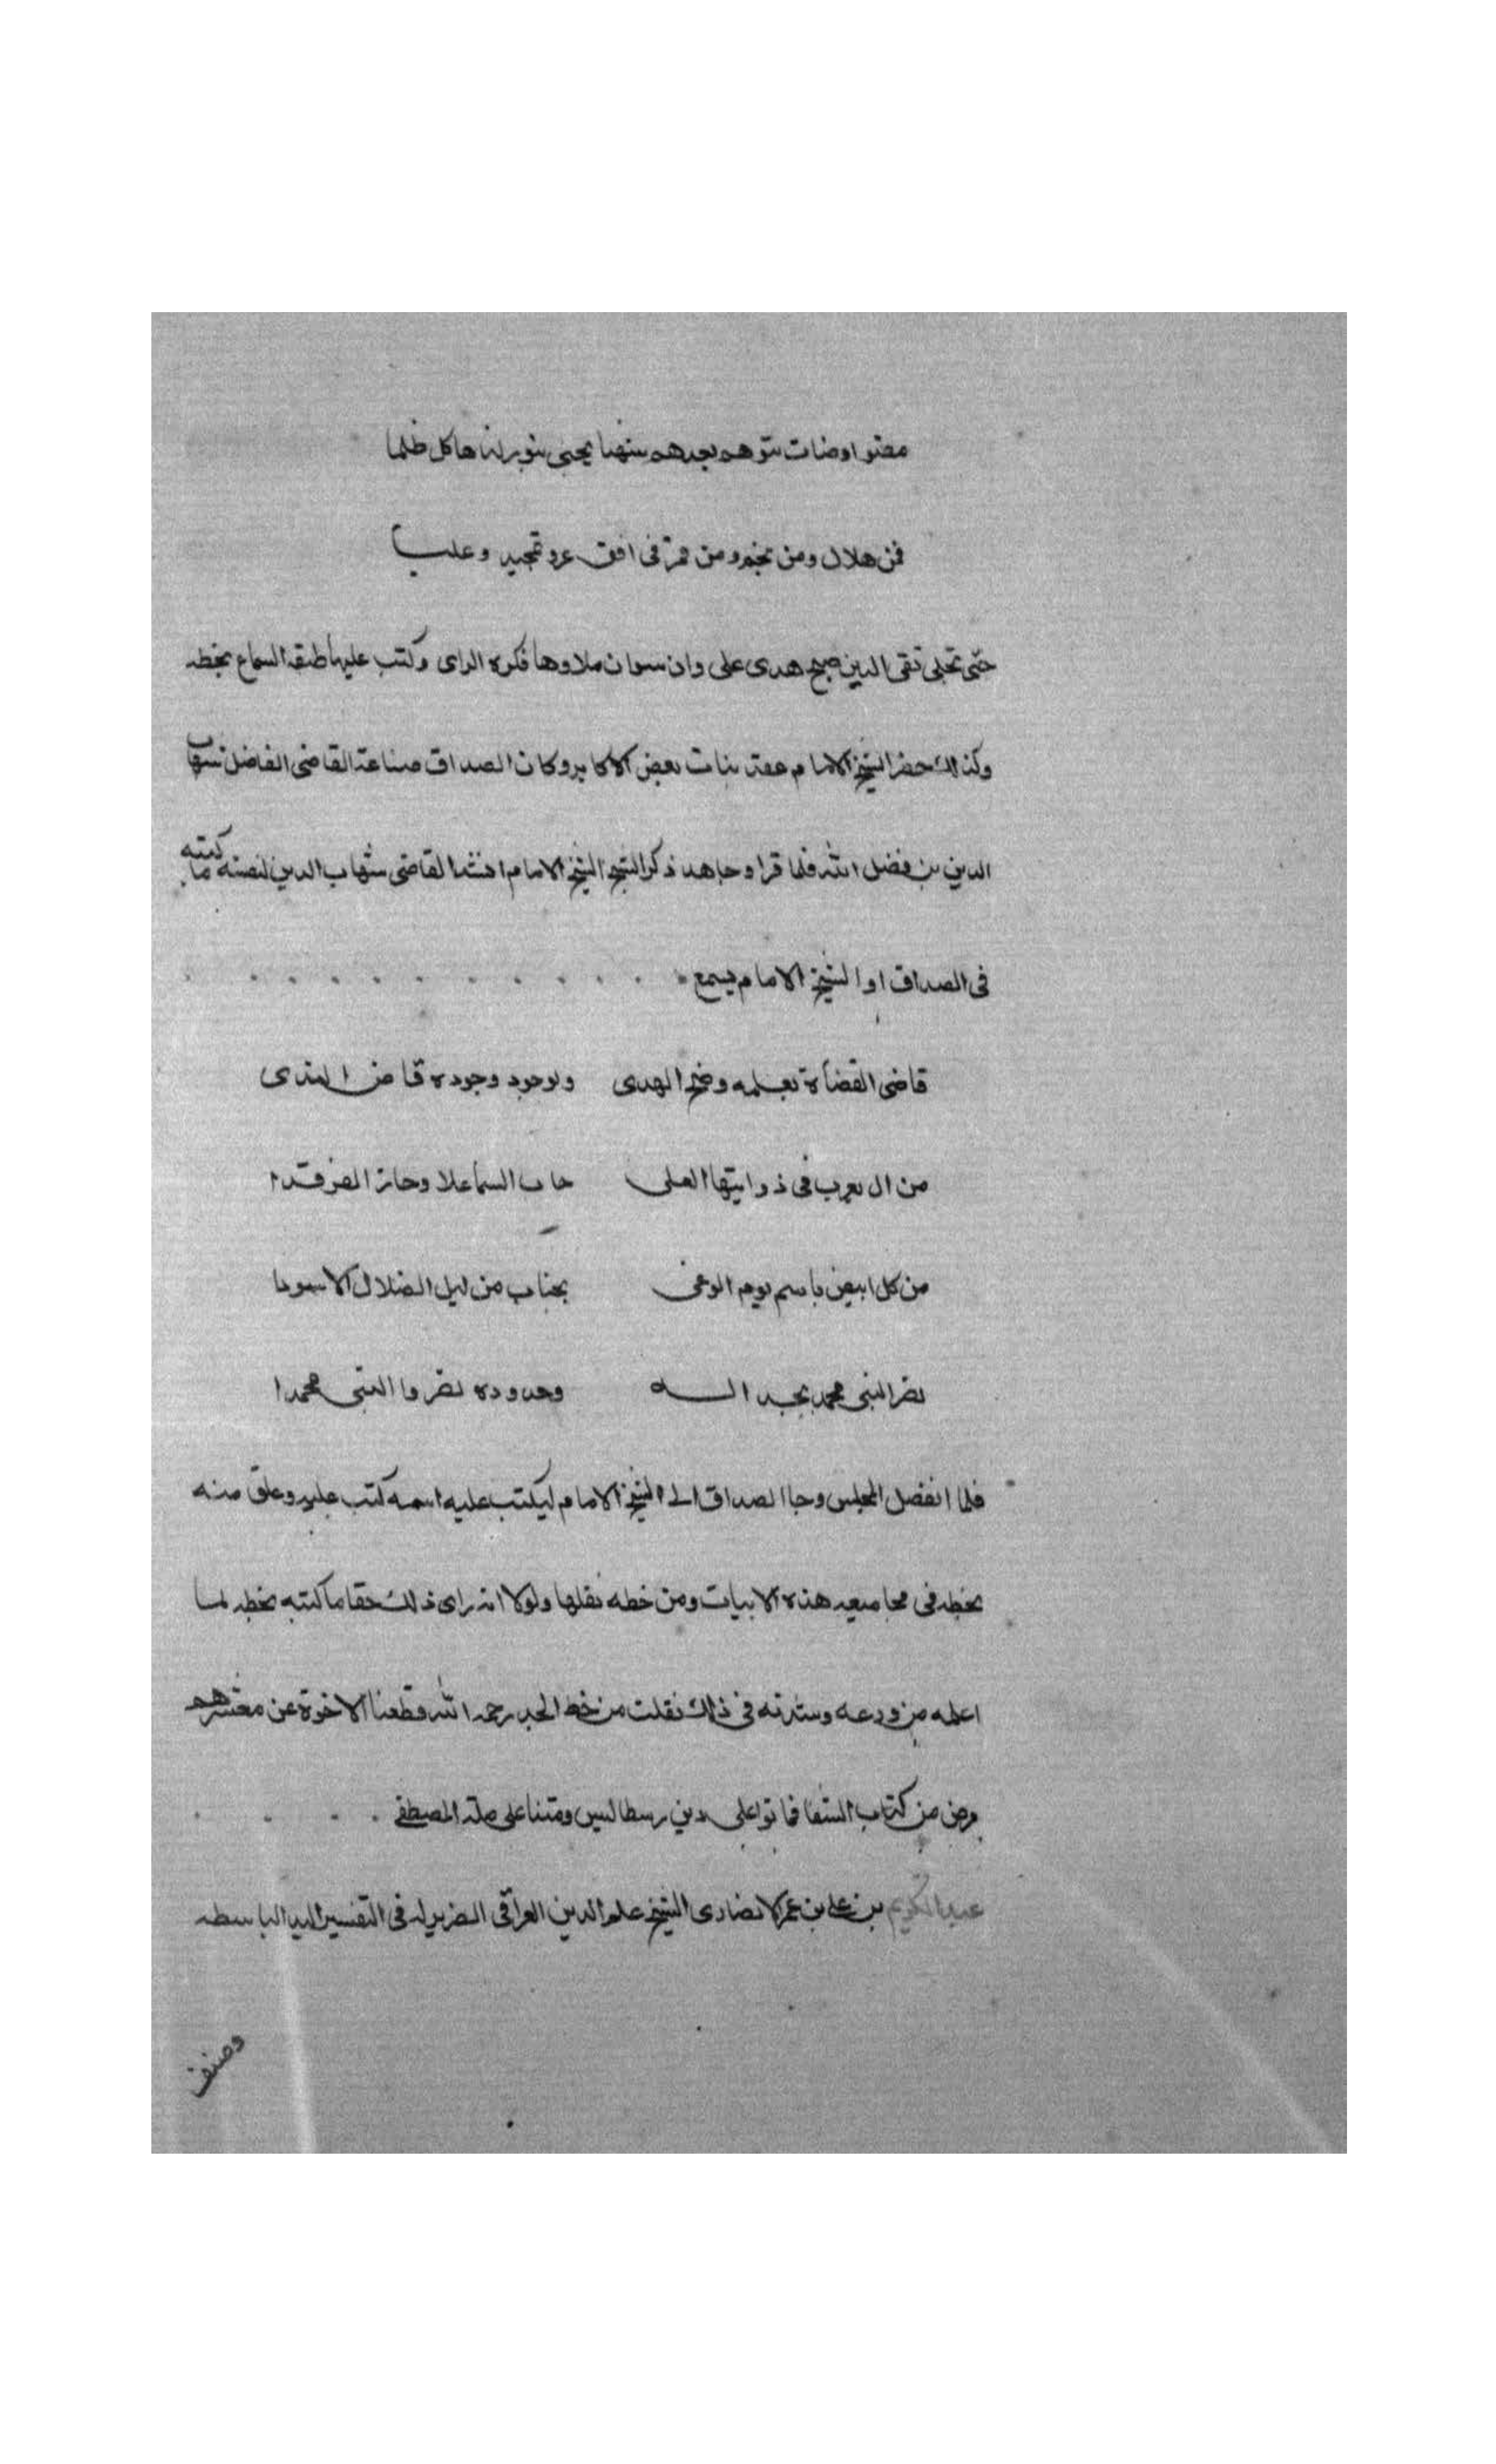 مضوا وضات بتوهم بعدهم شهبا يحيى بنورلنا هاكل ظلما
فمن هلال ومن نجم ومن قمر فى افق عز وتمجيد وعليا
حتى تجلى تقى الدين صبح هدى على وان سوان ملا وها فكره الراى وكتب عليها طبقة السماع بخطه
وكذلك حضر الشيخ الامام عقد بنات بعض الاكابر وكان الصداق صناعة القاضى الفاضل شهاب
الدين بن فضل الله فلما قرا وجاهد ذكر الشيخ الشيخ الامام انشد القاضى شهاب الدين لنفسه ما كتبه
فى الصداق او الشيخ الامام يسمع
قاضى القضاة بعلمه وضح الهدى ولوجود وجوده فاض الندى
من ال يعرب فى ذوايتها العلى جاب السما علا وحاز الفرقدا
من كل ابيض باسم يوم الوغى يجتاب من ليل الضلال الاسودا
نصر النبى محمد بجداله وجدوده نصروا النبى محمدا
فلما انفصل المجلس وجا الصداق الى الشيخ الامام ليكتب عليه اسمه كتب عليه وعلق منه
بخطه فى مجاميعه هذه الابيات ومن خطه نقلها ولولا انه راى ذلك حقا ما كتبه بخطه لما
اعلمه من ورعه وسدته فى ذلك نقلت من خط الجد رحمه الله قطعنا الاخوة عن معشر هم
مرض من كتاب الشفا فماتوا على دين رسطاليس ومتنا على ملة المصطفى
عبد الكريم بن على بن عمر الانصارى الشيخ علم الدين العراقى الضرير له فى التفسير اليد الباسطه
وصنف